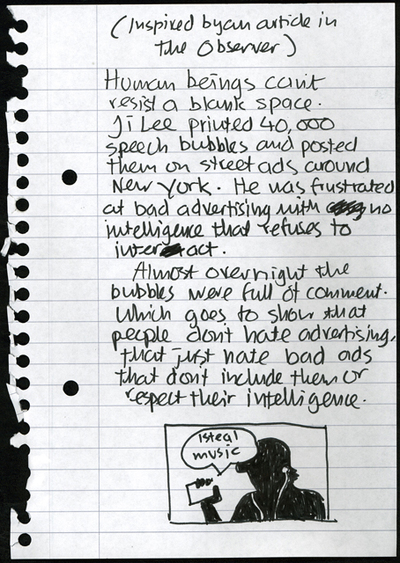 (Inspired by an article in
The Observer)
Human beings can't
resist a blank space.
Ji Lee printed 40,000
speech bubbles and posted
them on street ads around
New York. He was frustrated
at bad advertising with no
intelligence that refuses to
interact.
Almost overnight the
bubbles were full of comment.
Which goes to show that
people don't hate advertising,
that just hate bad ads
that don't include them or
respect their intelligence.
I steal
music